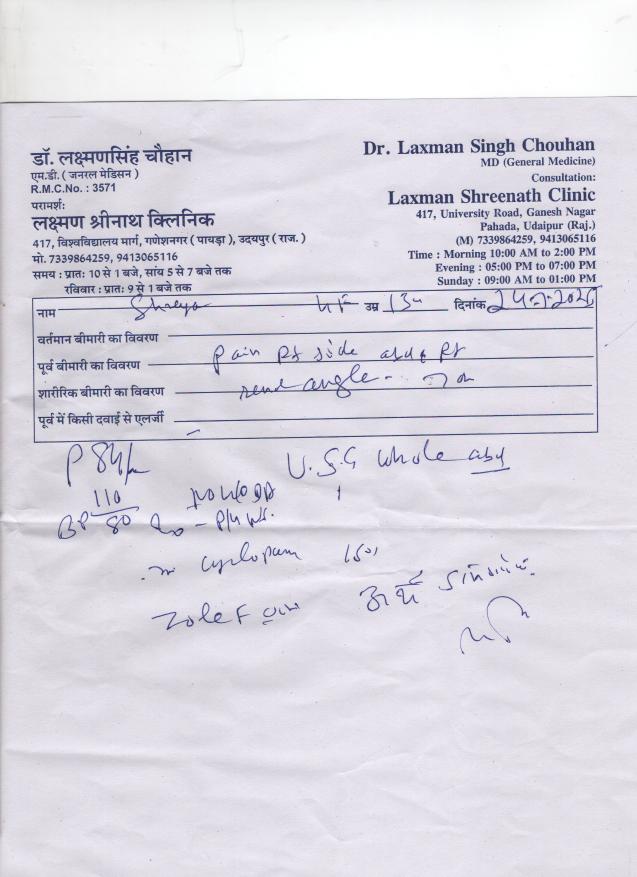 डॉ. लक्ष्मणसिंह चौहान
एम.डी. ( जनरल मेडिसन )
R.M.C.No. : 3571
परामर्श:
लक्ष्मण श्रीनाथ क्लिनिक
417, विश्वविद्यालय मार्ग, गणेशनगर ( पायड़ा ), उदयपुर ( राज. )
मो. 7339864259, 9413065116
समय : प्रातः 10 से 1 बजे, सांय 5 से 7 बजे तक
रविवार : प्रातः 9 से 1 बजे तक
Dr. Laxman Singh Chouhan
MD (General Medicine)
Consultation:
Laxman Shreenath Clinic
417, University Road, Ganesh Nagar
Pahada, Udaipur (Raj.)
(M) 7339864259, 9413065116
Time : Morning 10:00 AM to 2:00 PM
Evening : 05:00 PM to 07:00 PM
Sunday : 09:00 AM to 01:00 PM
नाम Shreya उम्र 13 दिनांक
वर्तमान बीमारी का विवरण
पूर्व बीमारी का विवरण pain Rt side Rt
शारीरिक बीमारी का विवरण angle
पूर्व में किसी दवाई से एलर्जी
P 84/m U.S.G whole abd
BP 110/80
cyclopam
Zole F